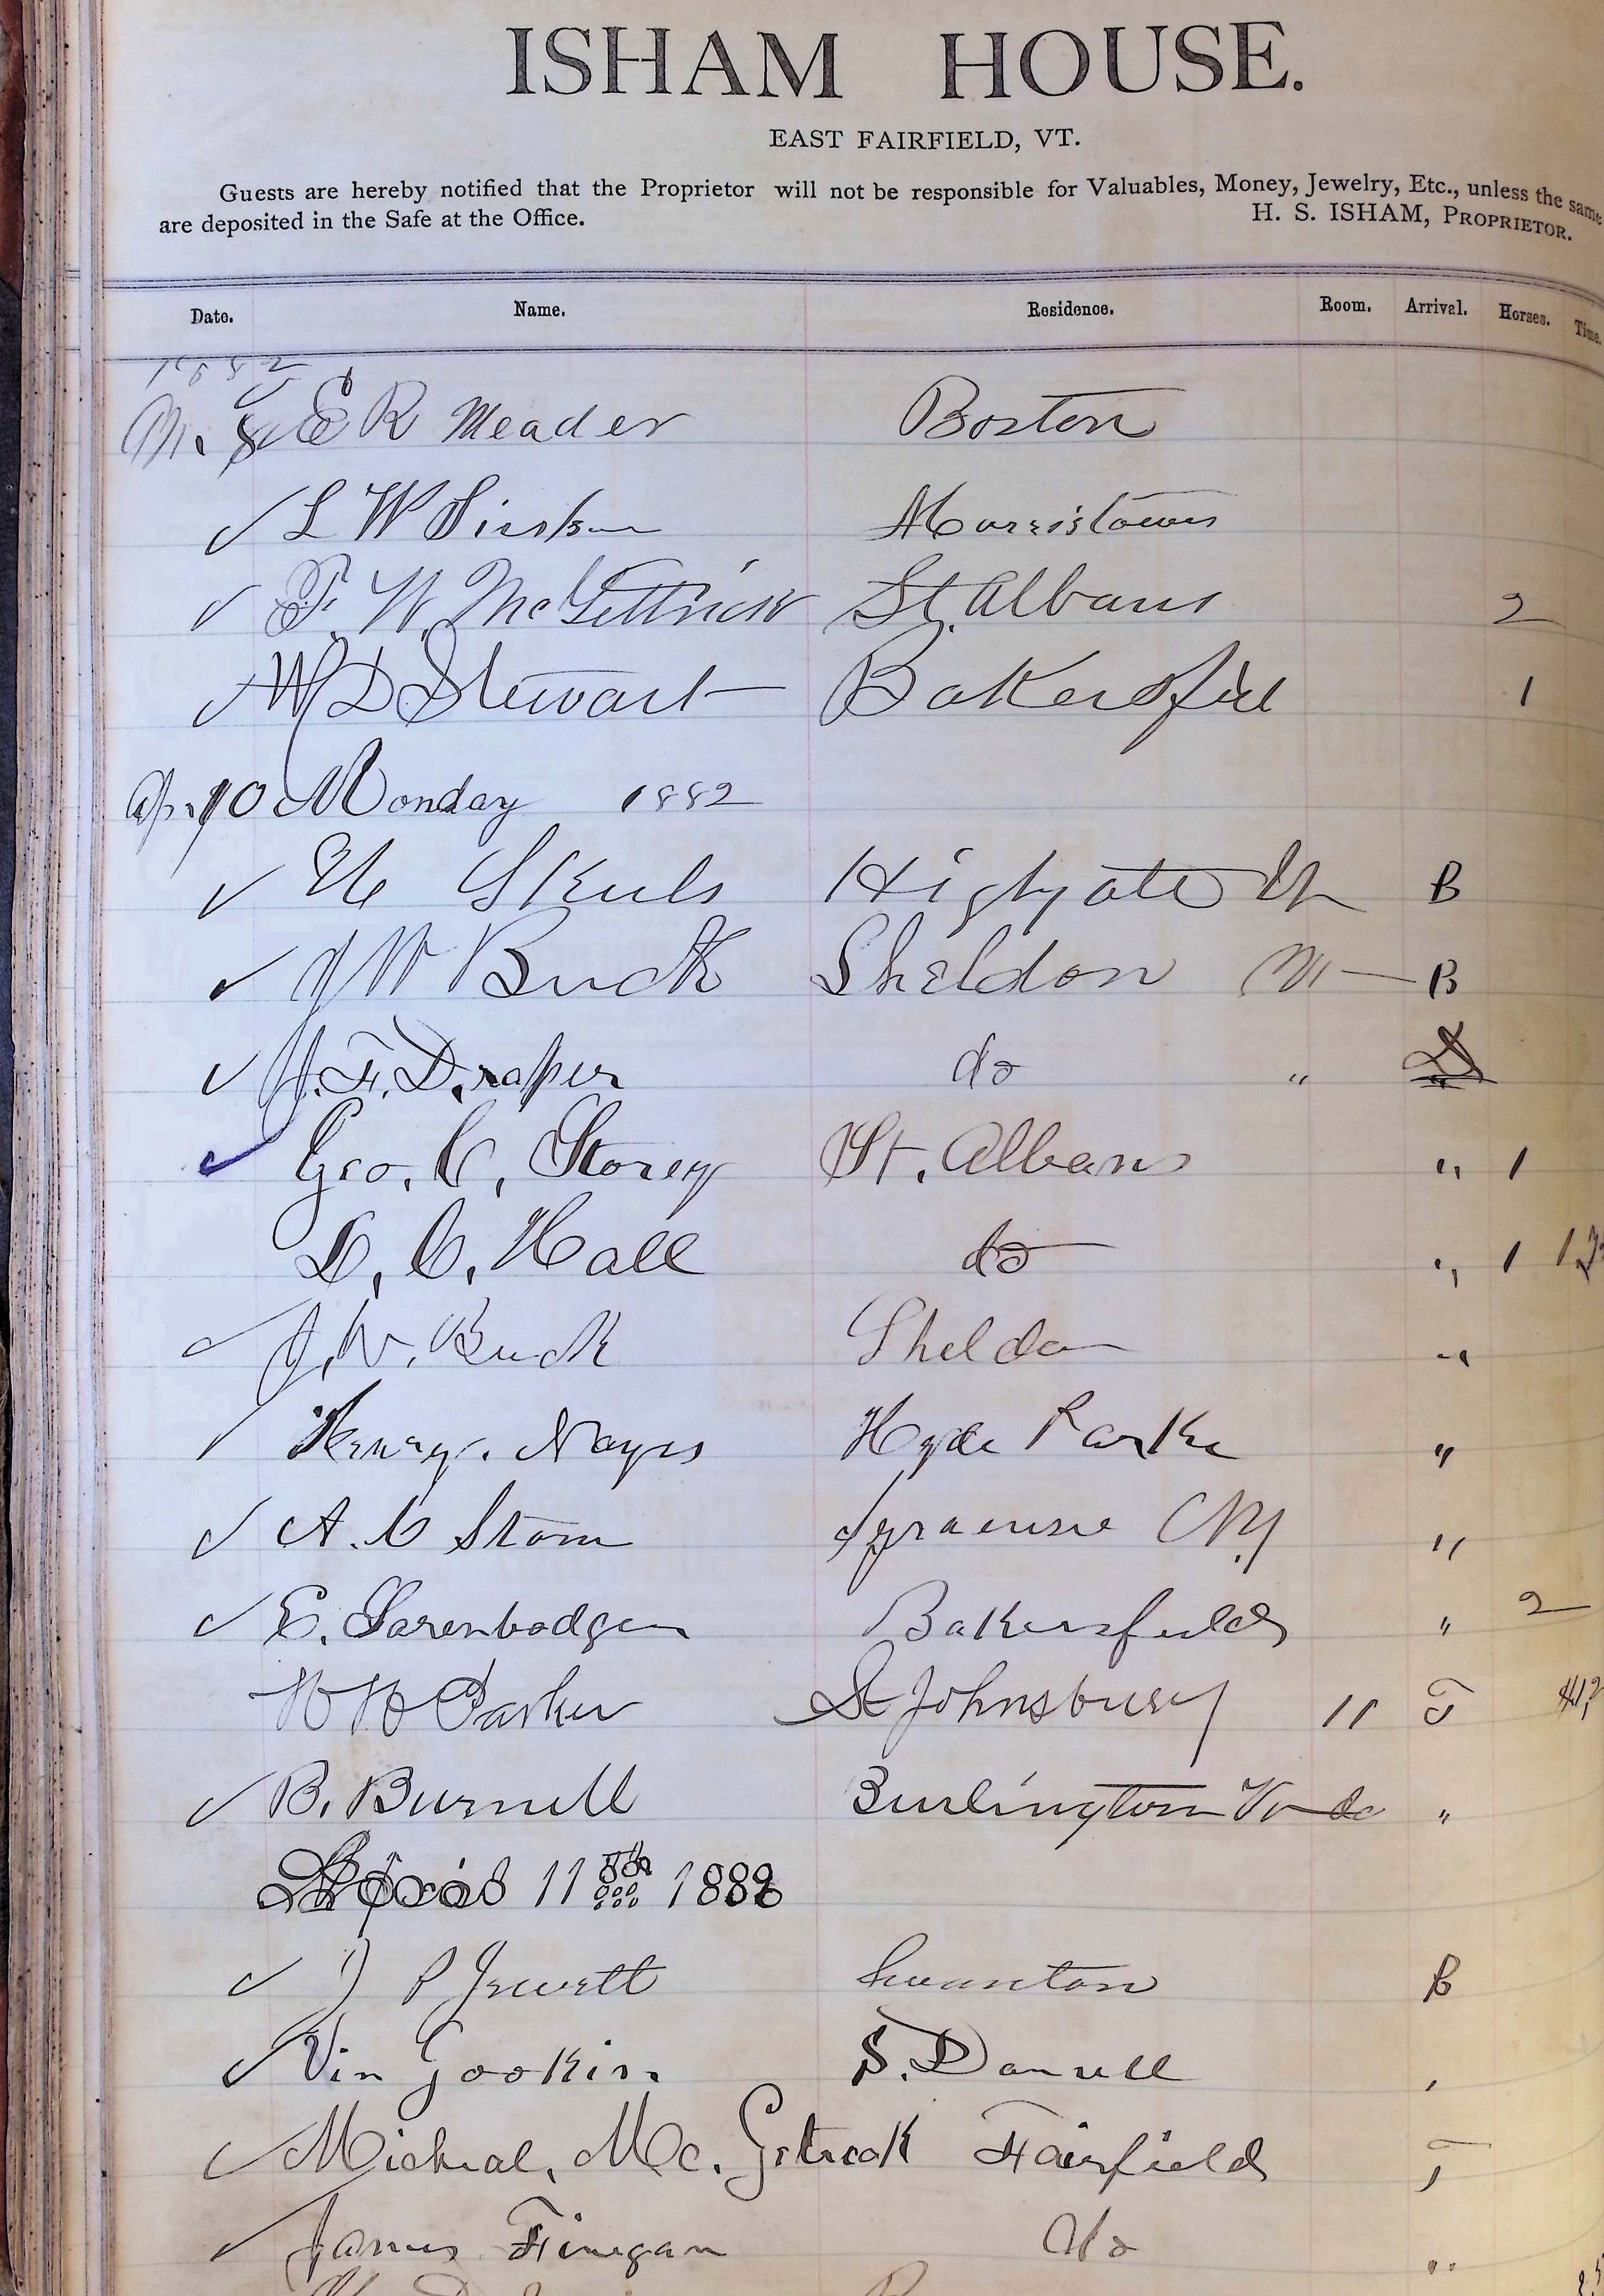 ISHAM HOUSE.
EAST FAIRFIELD, VT.
Guests are hereby notified that the Proprietor will not be responsible for Valuables, Money, Jewelry, Etc., unless the same
are deposited in the Safe at the Office. H. S. ISHAM, PROPRIETOR.
Date. Name. Residence. Room. Arrival. Horses. Time.
1882
E R Meader Boston
✓ L W Morristown
✓ F. W. McGettrick St. Albans 2
✓ W D Stewart Bakersfield 1
Ap. 10 Monday 1882
✓ Highgate B
✓ J W Buck Sheldon B
✓ J. F. Draper do " D
✓ Geo. C. Storey St. Albans " 1
D. C. Hall do " 1
✓ J. W. Buck Sheldon "
✓ Henry. Noyes Hyde Parke "
✓ A. C Storm Syracuse NY "
✓ E. Bakersfield " 2
W H Parker St Johnsbury 11 T
✓ B. Burnell Burlington Vt do "
April 11th 1882
✓ J P Jewett Swanton B
✓ Vin Gookin. S. Danvill
✓ Micheal. Mc. Getrick Fairfield T
✓ James Finegan do "